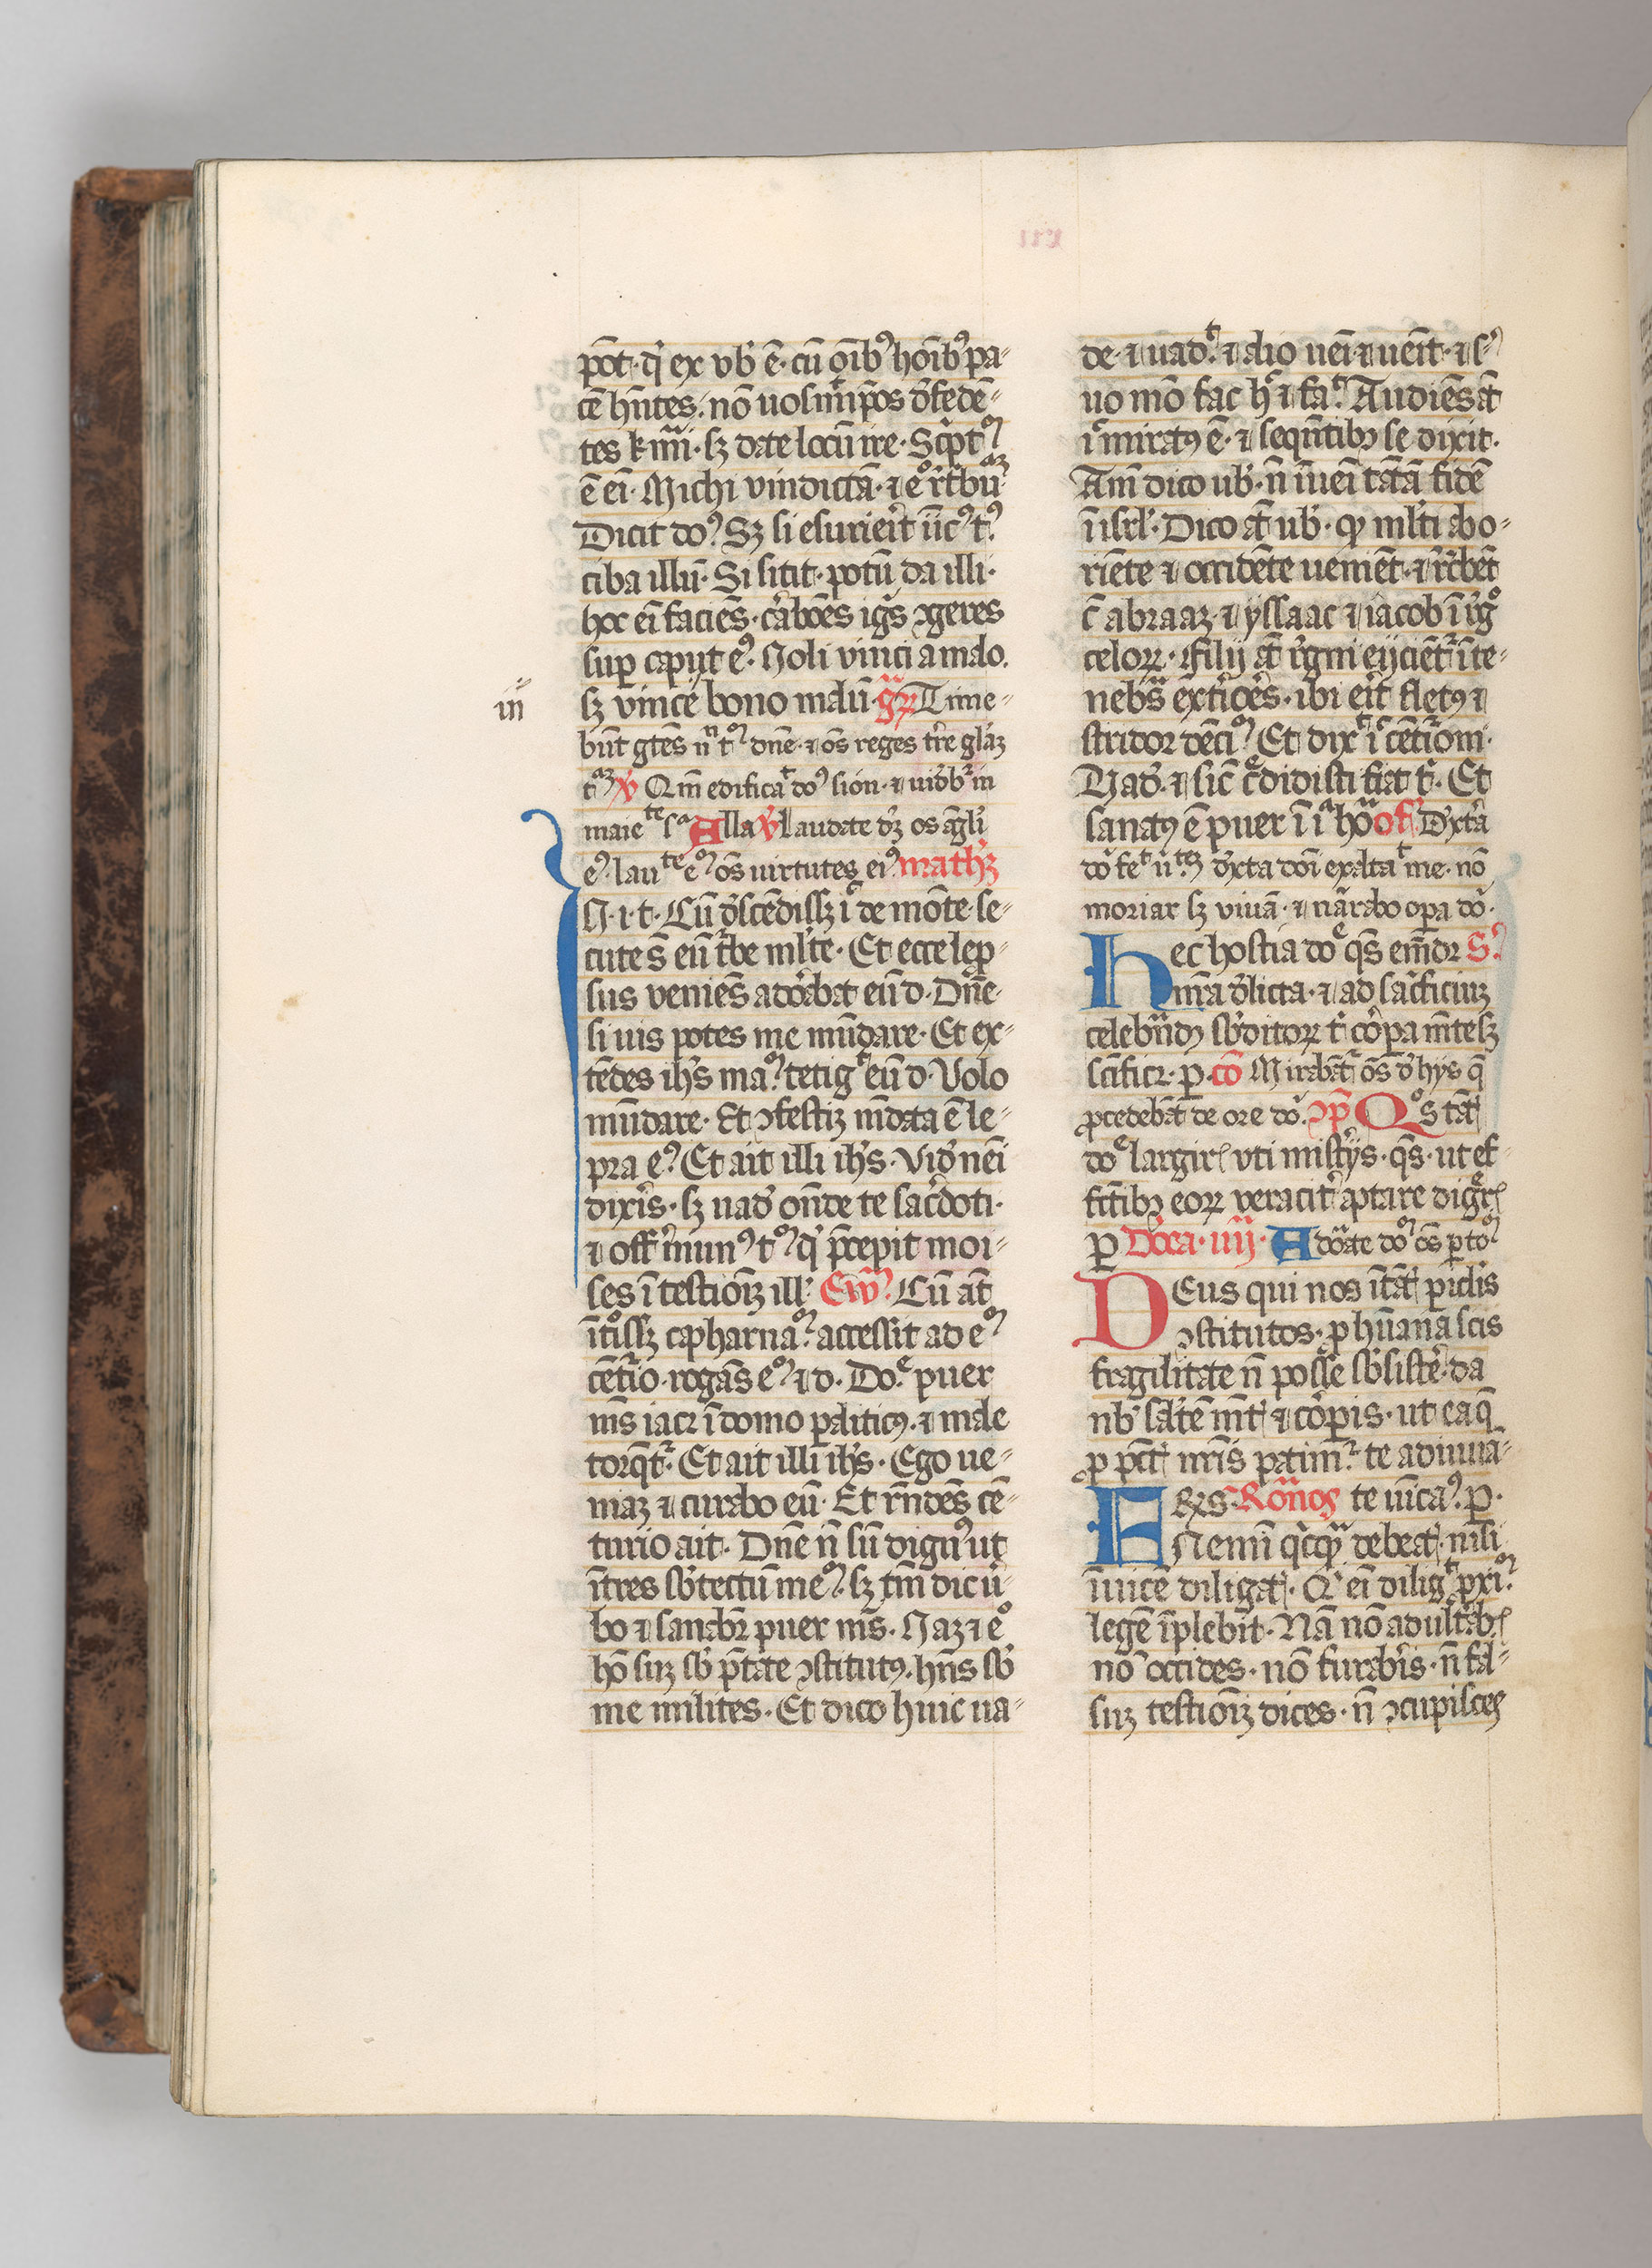 pōt · q̄ ex vob̄ ē · cū oīb᷒ hoīb᷒ pa⸗
cē hn̄tes · nō uosmīpōs d̓fedē⸗
tes kmi · sꝫ date locū ire · Sc̓pt
ē ei · Michi vindictā · ⁊ e° r̓tbu
Dicit do᷒ Sꝫ si esurier̄t
ciba illū · Si sitit · potū da illi ·
hoc ei faciēs · cāboēs ig̓s ꝯgeres
suꝑ caput e᷒ · Noli vinci a malo ·
iij
sꝫ vince bono malū · gr̄ Time⸗
būt gtēs n t dn̄e · ⁊ os̄ reges tr̄e gl̓aꝫ
t ꝟ Qm̄ edificat do᷒ sion · ⁊ uid̓b in
maie te s Alla ꝟ laudate dꝫ os āgl̓i
e᷒ lau te e os̄ uirtutes ei᷒ math̓ꝫ
N · i · t · Cū d̓scēdissꝫ i de mōte · se⸗
cute s̄ eū t̓be ml̓te · Et ecce lep⸗
sus veniēs ado̓bat eū d · Dn̄e
si uis potes me mūdare · Et ex⸗
tēdēs ih̄s ma tetig eū d · Volo
mūdare · Et ꝯfestiꝫ mūdata ē le⸗
pra e᷒ Et ait illi ih̄s · Vid̓ nei
dixis · sꝫ uad̓ oñde te sac̓doti ·
⁊ off mun᷒ t q̓ p̄cepit moi⸗
ses ī testioīꝫ ill · Ew̄ · Cū at̄
īt°issꝫ capharna accessit ad e
cēt̓io · rogās e ⁊ d · Do puer
ms̄ iacꝫ ī domo paliticꝰ · ⁊ male
torq̄t · Et ait illi ih̄s · Ego ue⸗
niaꝫ ⁊ curabo eū · Et rn̄dēs cē⸗
turio ait · Dn̄e n̄ sū dign᷒ ut
ītres sb̓ tectū me sꝫ tm̄ dic ū⸗
bo ⁊ sanabꝫ puer ms̄ · Naꝫ ⁊ e°
hō suꝫ sb̓ p̄tate ꝯstitutꝰ · hn̄s sb̓
me milites · Et dico huic ua⸗
de · ⁊ uad · ⁊ alio uei ⁊ ueīt · ⁊ s
uo mō fac h ⁊ fa · Audiēs at̄
i miratꝰ ē · ⁊ seqn̄tibꝰ se dixit ·
Am̄ dico ub̓ · n̄ īuei tātā fidē
ī isrl̓ · Dico at̄ ub̓ · qꝫ ml̓ti abo⸗
riēte ⁊ occidēte ueniēt · ⁊ r̓cbēt
c̄ abraaꝫ · ⁊ yssaac ⁊ iacob ī r̓g°
celoꝝ · filij at̄ r̓gni eijciēt ī te⸗
neb̓s ext̓io̓es · ibi eit̄ fletꝰ ⁊
stridor dēci Et dix i cēt̓ioni ·
Vad̓ · ⁊ sic̄ c̓didisti fiat t̓ · Et
sanatꝰ ē puer ī i ho of Dxt̓a
do fe ū te d̓xta doi exaltat me · nō
moriar sꝫ viuā · ⁊ nārabo opa do ·
Hec hostia do qs̄ em̄dꝫ S
nr̄a d̓licta · ⁊ ad sac̓ficiuꝫ
celebn̄dꝫ sb̓ditoꝝ t̓ co̓pa mētesꝫ
scīficꝫ · ꝑ · cō Mirabāt os̄ d̓ hys q̄
ꝓcedebāt de ore do · ꝯp̄ Q°s tāt
do largir vti mistijs · qs̄ · ut ef
fct̄ibꝰ eoꝝ veracit̓ aptare digr
ꝑ Dōica · iiij · Adoate do os̄ ꝑ to
Deus qui nos ī tāt ꝑic̓lis
ꝯstitutos · ꝑ humanā scis
fragilitate n̄ posse sb̓siste · da
nb̓ sal̓tē mt̄ ⁊ co̓pis · ut ea q̄
ꝓ pct̄ nr̄is patim te adiuuā⸗
F r̄s · Romos te uīca᷒ · ꝑ ·
Nemi q̓cqꝫ debeat · nisi
īuicē diligat · Q ei dilig pxi
legē īplebit · Nā nō adultab̓
nō occides · nō furab̓is · n̄ fal⸗
suꝫ testioīꝫ dices · n̄ ꝯcupisces